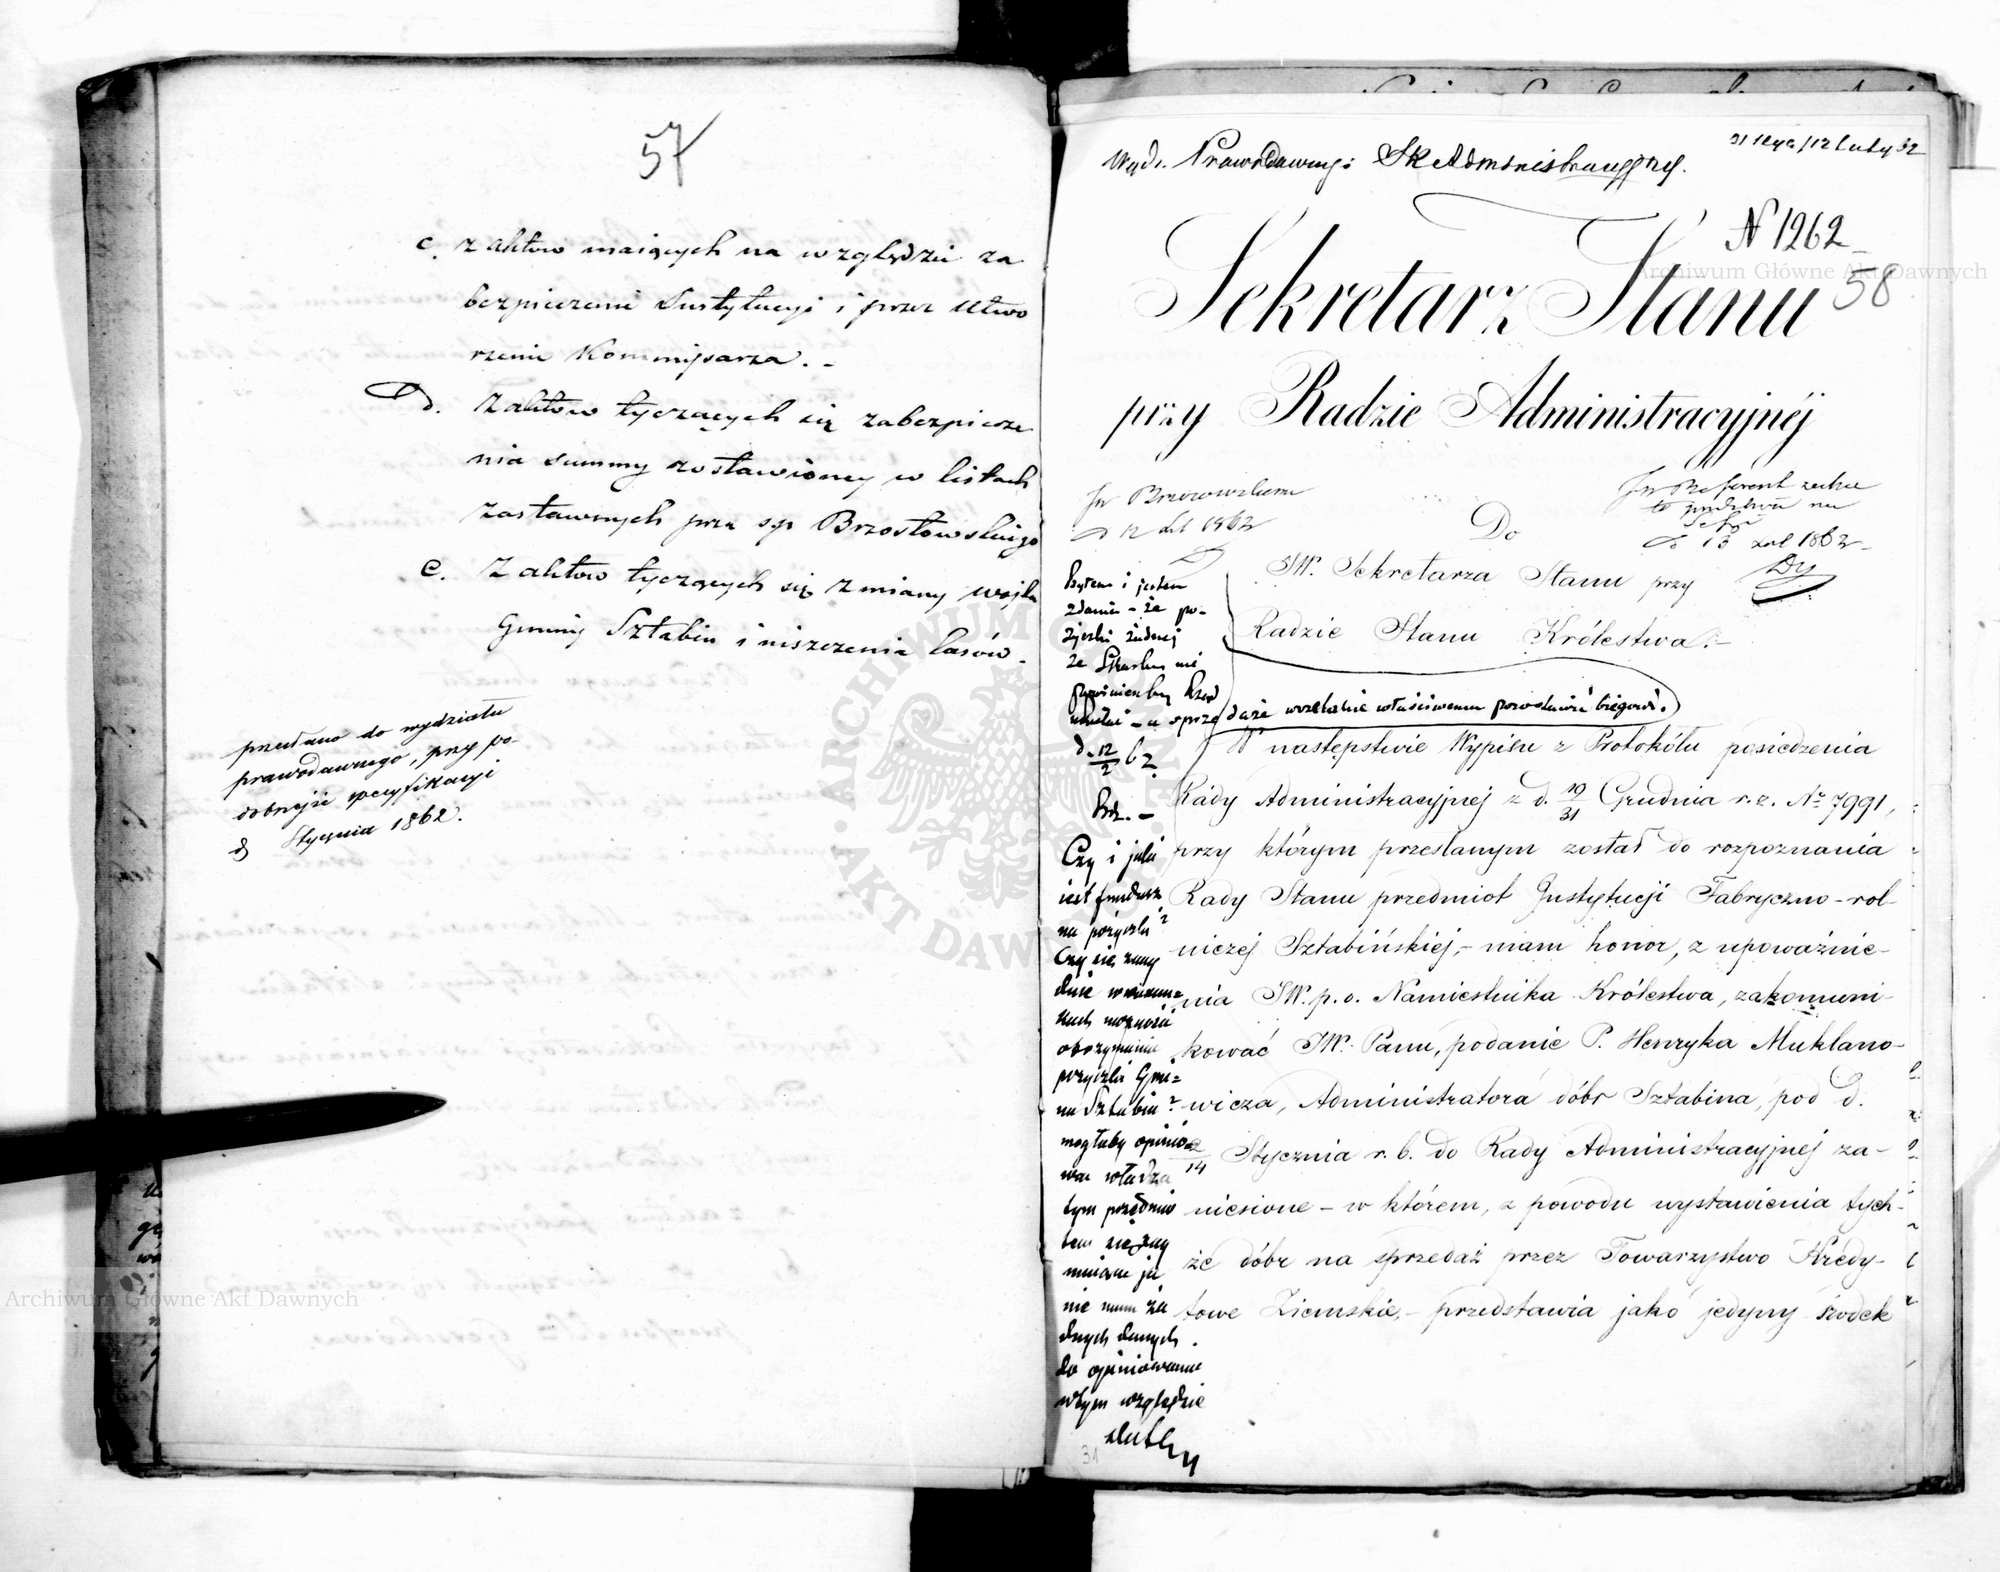 57
c. z aktów maiących na względzie za
bezpieczenie Instytucyi i przez utwo
rzenie Kommissarza. -
D. z aktów tyczących się zabezpiecze
nia summy zostawioney w listach
zastawnych prze sp Brzostowskiego
e. z aktów tyczących się zmiany wojta
Gminy Sztabin i niszczenia lasów.
przesłano do wydziału
prawodawnego, przy po-
dobnejże specyfikacyi
d Stycznia 1862.
Archiwum Główne Akt Dawnych
ARCHIWUM GŁÓWNE AKT DAWNYCH
Wydz. Prawodawczy: SR Administracyjny.
31 stycz/12 Luty 62
N 1262
Archiwum Główne Akt Dawnych
58
Sekretarz Stanu
przy Radzie Administracyjnéj
Jw Brzozowskiemu
d 12 Lut 1862
Jw Referent zechce
to przedstawić na
d 13 1862
Do
JW. Sekretarza Stanu przy
Radzie Stanu Królestwa.-
Byłem i jestem
zdania - że po-
życzki żadnej
ze Skarbu nie
powinien by Rząd
udzielać - a sprzedaże wszelakie właściwemu pozostawić biegowi.
d. 12/2 62
Brz. -
Czy i jaki
iest fundusz
na pożyczki?
Czy się znay
duie w warun=
kach możność
otrzymania
pożyczki Gmi=
na Sztabin?
mogłaby opinio
wać władza
tym przedmio
tem się zay
mująca ja
nie mam ża
dnych danych
do opiniowania
w tym względzie
W następstwie Wypisu z Protokółu posiedzenia
Rady Administracyjnej z d. 19/31 Grudnia r.z. No 7991,
przy którym przesłanym został do rozpoznania
Rady Stanu przedmiot Instytucji Fabryczno-rol-
niczej Sztabińskiej,- mam honor, z upoważnie-
nia JW. p. o. Namiestnika Królestwa, zakomuni-
kować JW. Panu, podanie P. Henryka Muklano-
wicza, Administratora dóbr Sztabina, pod d.
2/14 Stycznia r. b. do Rady Administracyjnej za-
niesione - w którem, z powodu wystawienia tych-
że dóbr na sprzedaż przez Towarzystwo Kredy-
towe Ziemskie,- przedstawia jako jedyny środek
31